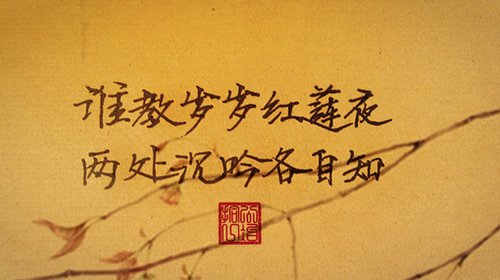 谁教岁岁红莲夜
两处沉吟各自知